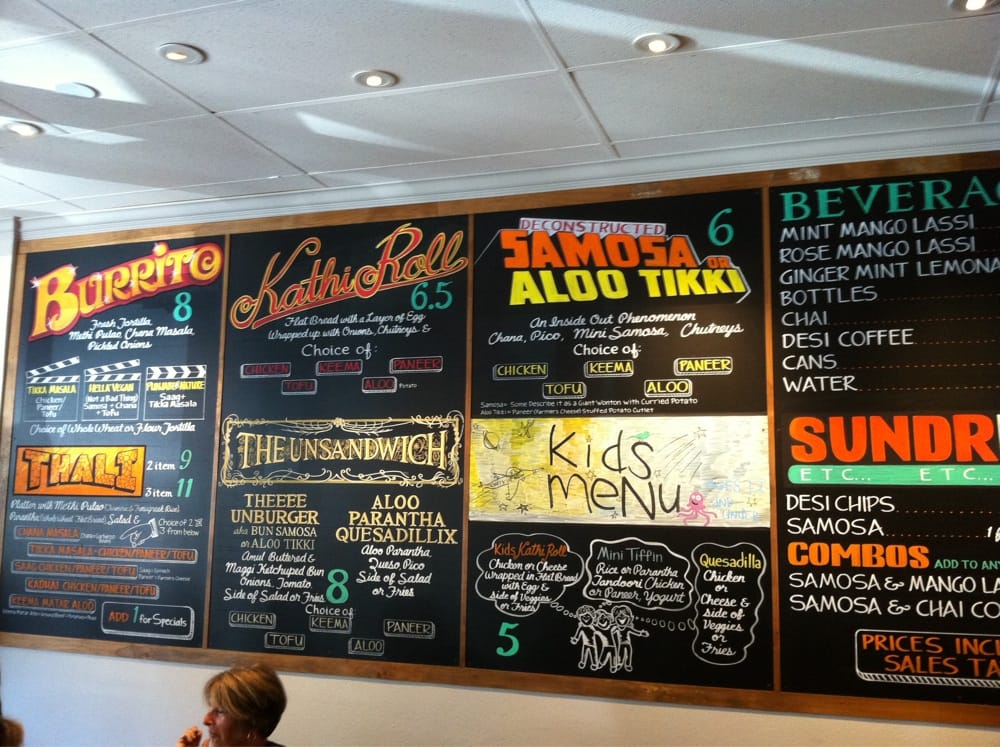 BURRITO
8
Fresh Tortilla,
Methi Pulao, Chana Masala,
Pickled Onions
TIKKA MASALA
Chicken/
Paneer/
Tofu
HELLA VEGAN
(Not a Bad Thing)
Samosa + Chana
+ Tofu
PUNJABI BY NATURE
Saag +
Tikka Masala
Choice of Whole Wheat or Flour Tortilla
THALI
2 item 9
3 item 11
Platter with Methi Pulao
Parantha Salad &
Choice of 2 or
3 from below
CHANA MASALA
TIKKA MASALA-CHICKEN/PANEER/TOFU
SAAG CHICKEN/PANEER/TOFU
KADHAI CHICKEN/PANEER/TOFU
KEEMA MATAR ALOO
ADD 1 for Specials
Kathi Roll
6.5
Flat Bread with a Layer of Egg
Wrapped up with Onions, Chutneys, &
Choice of:
CHICKEN
KEEMA
PANEER
TOFU
ALOO Potato
THE UNSANDWICH
THEEEE
UNBURGER
aka BUN SAMOSA
or ALOO TIKKI
Amul Buttered &
Maggi Ketchuped Bun
Onions, Tomato
Side of Salad or Fries
ALOO
PARANTHA
QUESADILLIX
Aloo Parantha,
Queso, Pico
Side of Salad
or Fries
8
Choice of:
CHICKEN
KEEMA
PANEER
TOFU
ALOO
DECONSTRUCTED
SAMOSA OR
ALOO TIKKI
6
An Inside Out Phenomenon
Chana, Pico, Mini Samosa, Chutneys
Choice of:
CHICKEN
KEEMA
PANEER
TOFU
ALOO
Samosa= Some Describe it as a Giant Wonton with Curried Potato
Aloo Tikki= Paneer (Farmers Cheese) Stuffed Potato Cutlet
Kids
MENU
Kids Kathi Roll
Chicken or Cheese
Wrapped in Flat Bread
with Egg &
side of Veggies
or Fries
Mini Tiffin
Rice or Parantha
Tandoori Chicken
or Paneer, Yogurt
Quesadilla
Chicken
or
Cheese &
side of
Veggies
or Fries
5
BEVERA
MINT MANGO LASSI
ROSE MANGO LASSI
GINGER MINT LEMONA
BOTTLES
CHAI
DESI COFFEE
CANS
WATER
SUNDR
ETC... ETC...
DESI CHIPS
SAMOSA
COMBOS ADD TO AN
SAMOSA & MANGO LA
SAMOSA & CHAI CO
PRICES INC
SALES TA